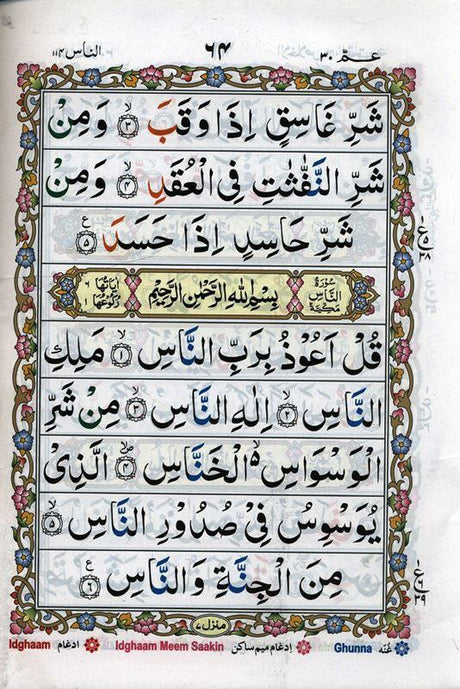 عم ٣٠ ٦٤ الناس ١١٤
شَرِّ غَاسِقٍ اِذَا وَقَبَ ۙ﴿٣﴾ وَمِنْ
شَرِّ النَّفّٰثٰتِ فِی الْعُقَدِ ۙ﴿٤﴾ وَمِنْ
شَرِّ حَاسِدٍ اِذَا حَسَدَ ﴿٥﴾ ع
سُوْرَةُ النَّاسِ مَكِّيَّةٌ بِسْمِ اللّٰهِ الرَّحْمٰنِ الرَّحِيْمِ اٰيَاتُهَا ٦ رُكُوْعُهَا ١
قُلْ اَعُوْذُ بِرَبِّ النَّاسِ ۙ﴿١﴾ مَلِكِ
النَّاسِ ۙ﴿٢﴾ اِلٰهِ النَّاسِ ۙ﴿٣﴾ مِنْ شَرِّ
الْوَسْوَاسِ ۙ۬ الْخَنَّاسِ ۪ۙ﴿٤﴾ الَّذِیْ
يُوَسْوِسُ فِیْ صُدُوْرِ النَّاسِ ۙ﴿٥﴾
مِنَ الْجِنَّةِ وَالنَّاسِ ﴿٦﴾ ع
منزل ٧
Idghaam ادغام Idghaam Meem Saakin ادغام میم ساکن Ghunna غُنّه